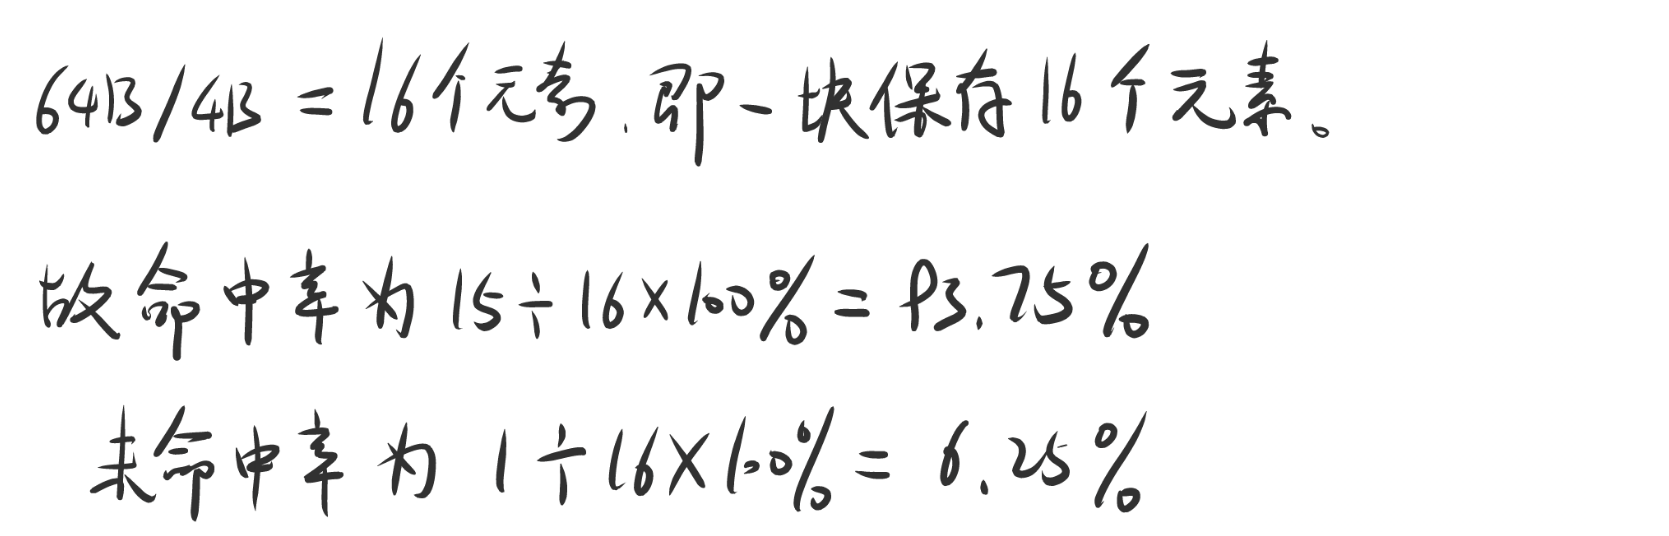 64B/4B = 16个元素.即一块保存16个元素。
故命中率为 15÷16×100% = 93.75%
未命中率为 1÷16×100% = 6.25%